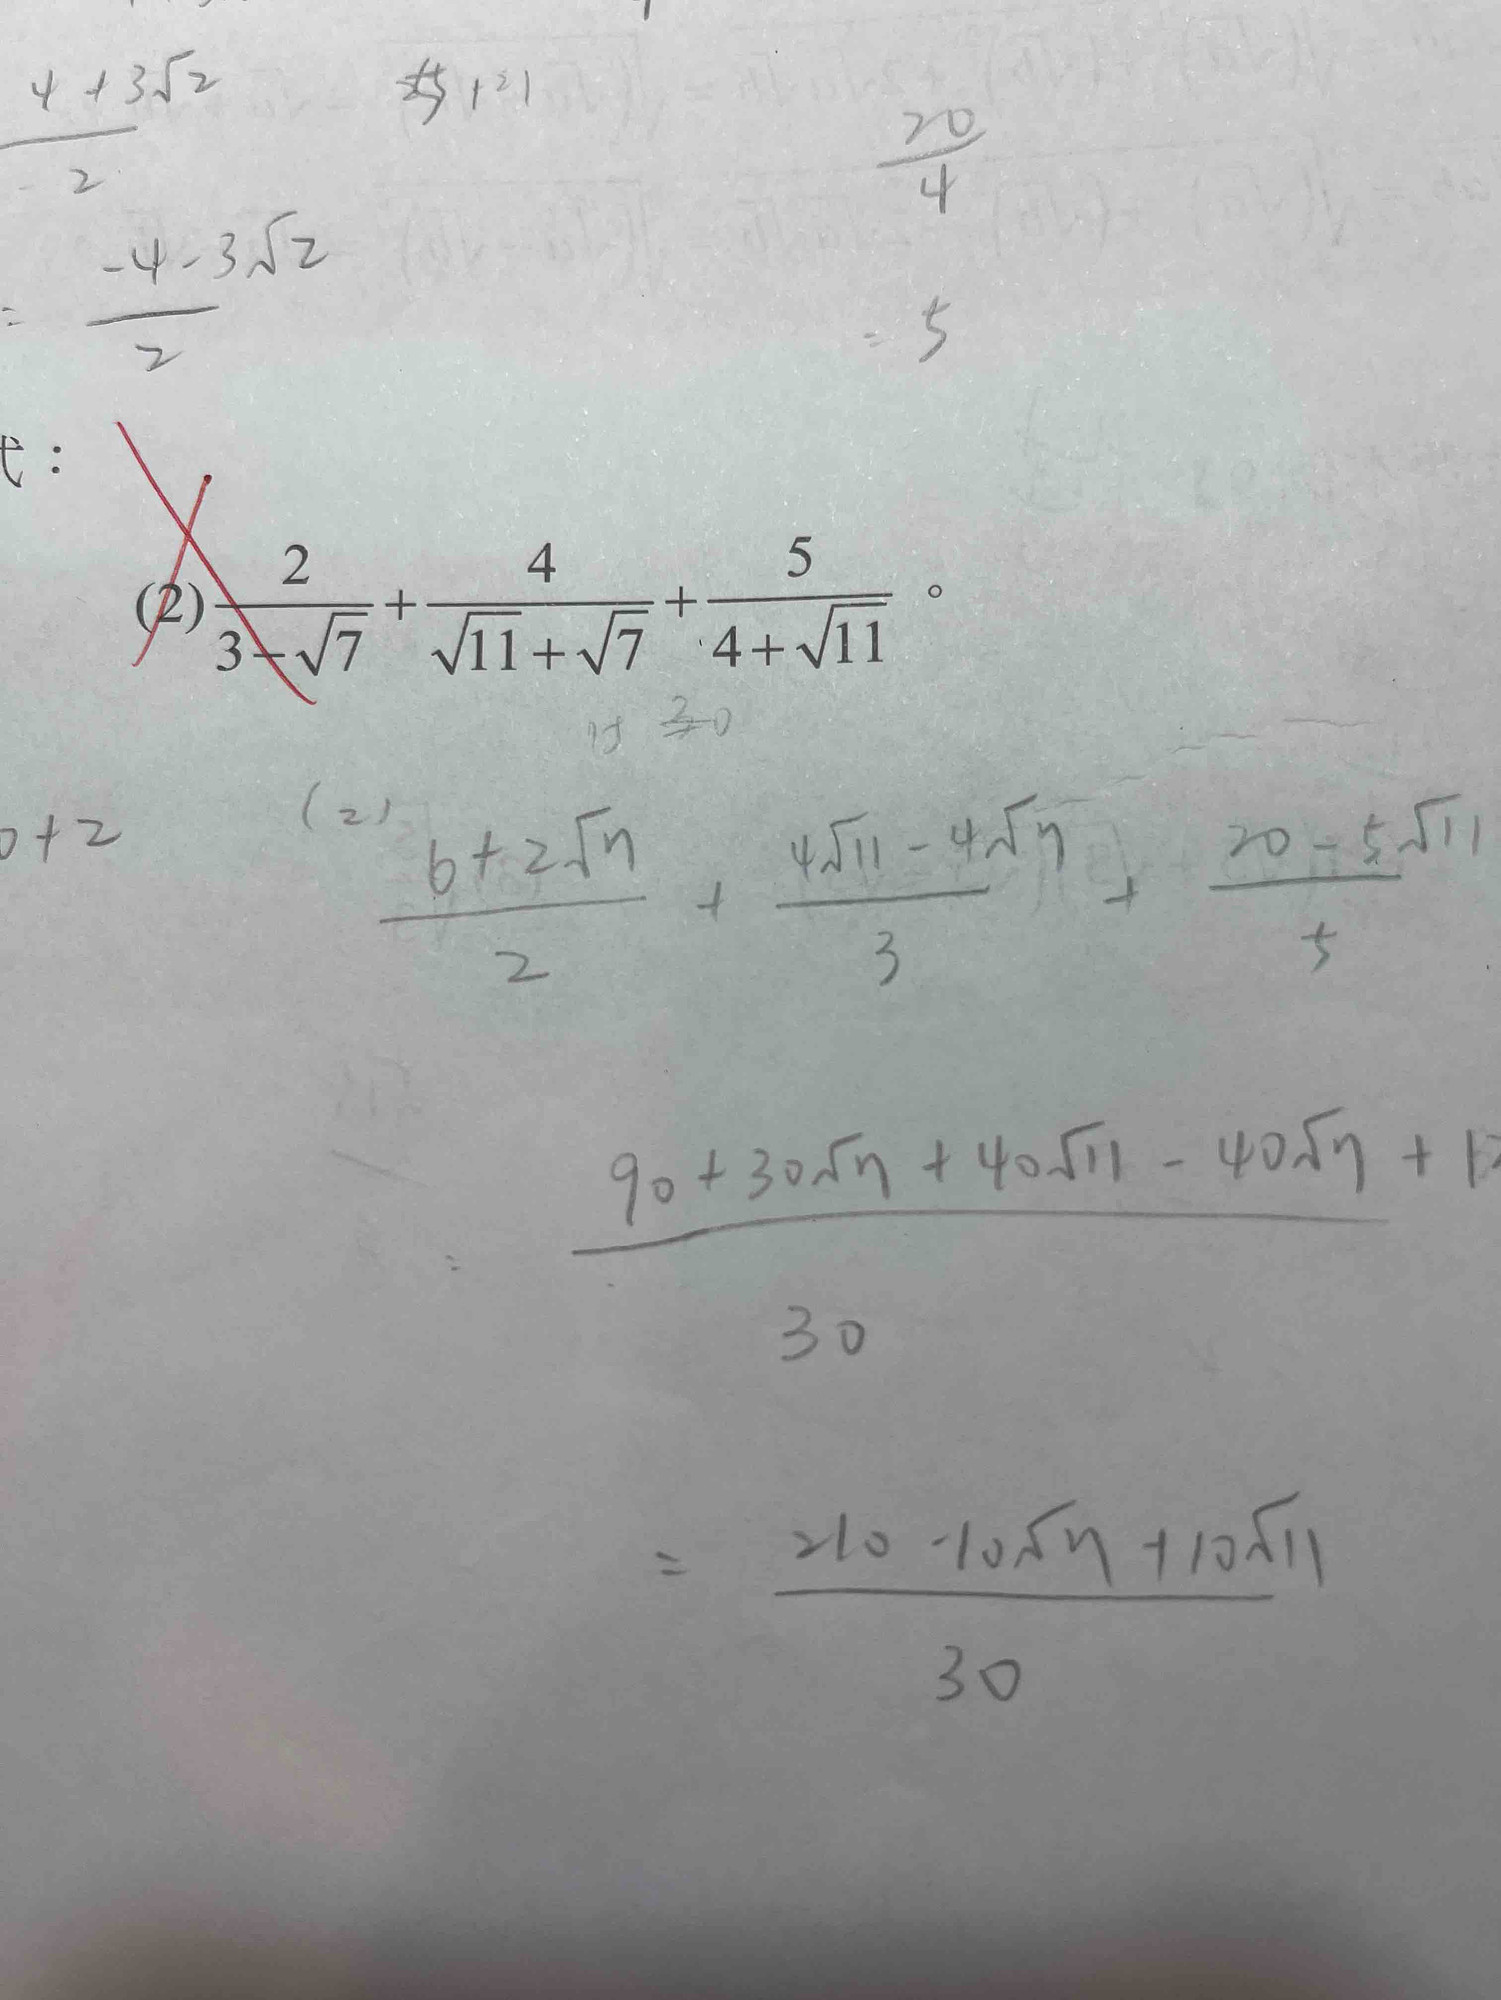 4+3√2
-2
20
4
= -4-3√2
2
= 5
式：
(2) 2/(3-√7) + 4/(√11+√7) + 5/(4+√11) 。
15 30
+2
(2) (6+2√7)/2 + (4√11-4√7)/3 + (20-5√11)/5
= (90+30√7+40√11-40√7+12
30
= (210-10√7+10√11)/30